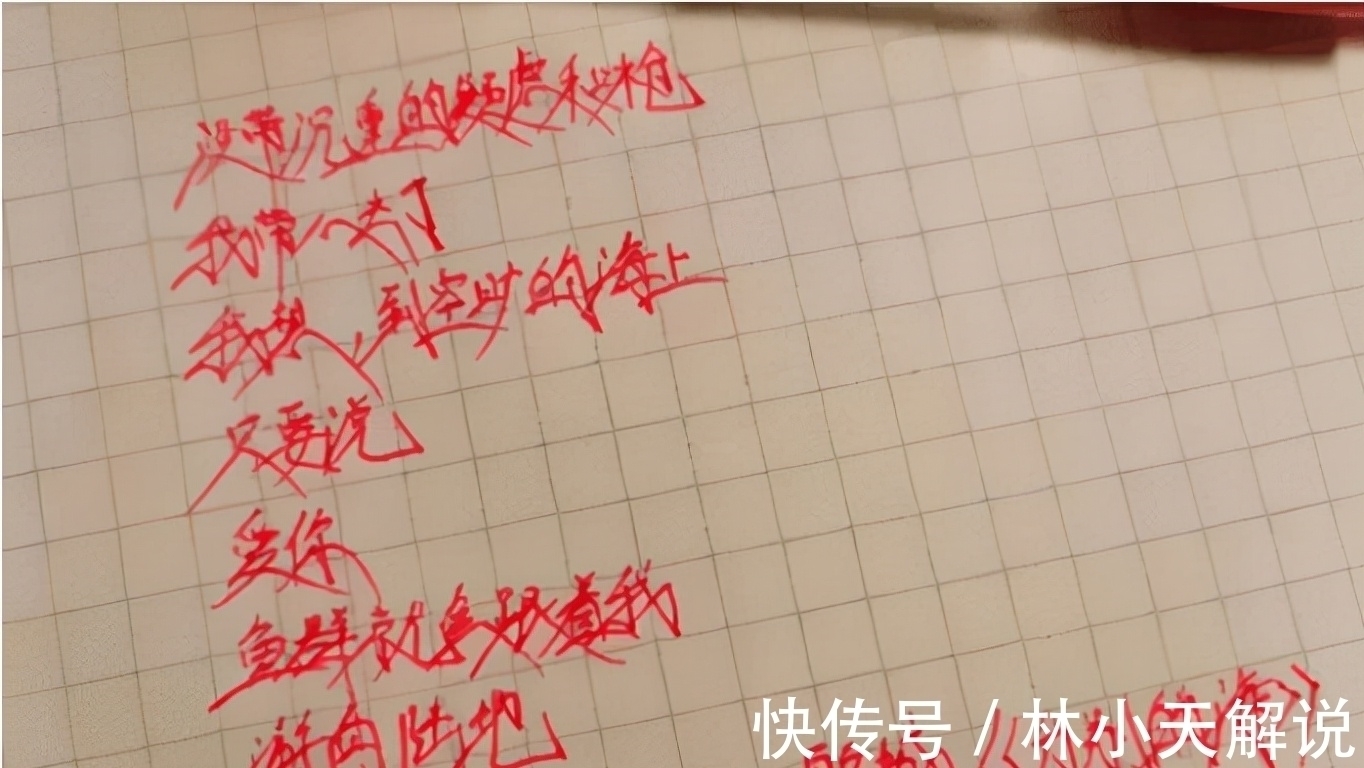 没带沉重的疑虑和枪
我带心去了
我想，到空旷的海上
只要说
爱你
鱼群就会跟着我
游向陆地
快传号 / 林小天解说